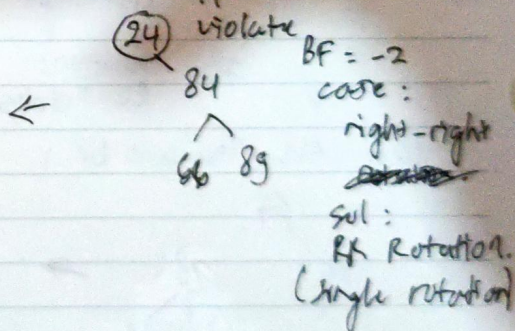 24 violate
BF = -2
84
case :
right-right
89
sol :
RR Rotation.
(single rotation)